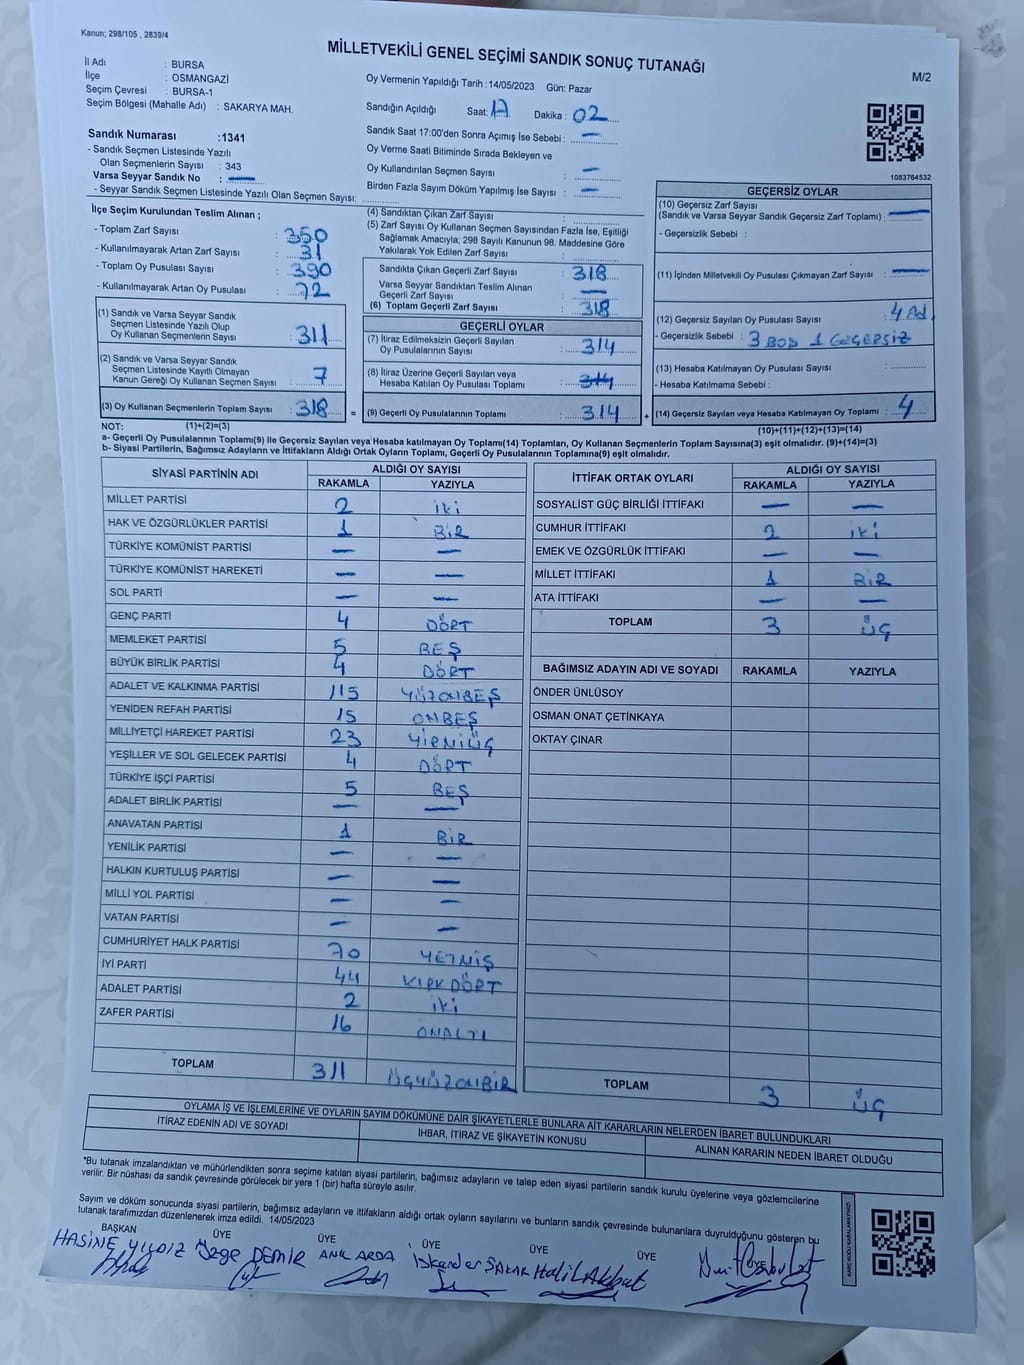 Kanun; 298/105 , 2839/4
MİLLETVEKİLİ GENEL SEÇİMİ SANDIK SONUÇ TUTANAĞI
M/2
İl Adı : BURSA
İlçe : OSMANGAZİ
Seçim Çevresi : BURSA-1
Seçim Bölgesi (Mahalle Adı) : SAKARYA MAH.
Oy Vermenin Yapıldığı Tarih :14/05/2023 Gün: Pazar
Sandığın Açıldığı Saat: 17 Dakika : 02
Sandık Saat 17:00'den Sonra Açımış İse Sebebi : —
Oy Verme Saati Bitiminde Sırada Bekleyen ve
Oy Kullandırılan Seçmen Sayısı : —
Birden Fazla Sayım Döküm Yapılmış İse Sayısı : —
Sandık Numarası :1341
- Sandık Seçmen Listesinde Yazılı
Olan Seçmenlerin Sayısı : 343
Varsa Seyyar Sandık No : —
- Seyyar Sandık Seçmen Listesinde Yazılı Olan Seçmen Sayısı:
1083764532
İlçe Seçim Kurulundan Teslim Alınan ;
- Toplam Zarf Sayısı : 350
- Kullanılmayarak Artan Zarf Sayısı : 31
- Toplam Oy Pusulası Sayısı : 390
- Kullanılmayarak Artan Oy Pusulası : 72
(1) Sandık ve Varsa Seyyar Sandık
Seçmen Listesinde Yazılı Olup
Oy Kullanan Seçmenlerin Sayısı : 311
(2) Sandık ve Varsa Seyyar Sandık
Seçmen Listesinde Kayıtlı Olmayan
Kanun Gereği Oy Kullanan Seçmen Sayısı : 7
(3) Oy Kullanan Seçmenlerin Toplam Sayısı : 318
(4) Sandıktan Çıkan Zarf Sayısı :
(5) Zarf Sayısı Oy Kullanan Seçmen Sayısından Fazla İse, Eşitliği
Sağlamak Amacıyla; 298 Sayılı Kanunun 98. Maddesine Göre
Yakılarak Yok Edilen Zarf Sayısı :
Sandıkta Çıkan Geçerli Zarf Sayısı : 318
Varsa Seyyar Sandıktan Teslim Alınan
Geçerli Zarf Sayısı : —
(6) Toplam Geçerli Zarf Sayısı : 318
GEÇERLİ OYLAR
(7) İtiraz Edilmeksizin Geçerli Sayılan
Oy Pusulalarının Sayısı : 314
(8) İtiraz Üzerine Geçerli Sayılan veya
Hesaba Katılan Oy Pusulası Toplamı : 314
= (9) Geçerli Oy Pusulalarının Toplamı : 314
GEÇERSİZ OYLAR
(10) Geçersiz Zarf Sayısı
(Sandık ve Varsa Seyyar Sandık Geçersiz Zarf Toplamı) : —
- Geçersizlik Sebebi :
(11) İçinden Milletvekili Oy Pusulası Çıkmayan Zarf Sayısı : —
(12) Geçersiz Sayılan Oy Pusulası Sayısı : 4 Ad.
- Geçersizlik Sebebi : 3 BOŞ 1 GEÇERSİZ
(13) Hesaba Katılmayan Oy Pusulası Sayısı :
- Hesaba Katılmama Sebebi :
+ (14) Geçersiz Sayılan veya Hesaba Katılmayan Oy Toplamı : 4
NOT: (1)+(2)=(3) (10)+(11)+(12)+(13)=(14)
a- Geçerli Oy Pusulalarının Toplamı(9) ile Geçersiz Sayılan veya Hesaba katılmayan Oy Toplamı(14) Toplamları, Oy Kullanan Seçmenlerin Toplam Sayısına(3) eşit olmalıdır. (9)+(14)=(3)
b- Siyasi Partilerin, Bağımsız Adayların ve İttifakların Aldığı Ortak Oyların Toplamı, Geçerli Oy Pusulalarının Toplamına(9) eşit olmalıdır.
SİYASİ PARTİNİN ADI ALDIĞI OY SAYISI
RAKAMLA YAZIYLA
MİLLET PARTİSİ 2 İKİ
HAK VE ÖZGÜRLÜKLER PARTİSİ 1 BİR
TÜRKİYE KOMÜNİST PARTİSİ — —
TÜRKİYE KOMÜNİST HAREKETİ — —
SOL PARTİ — —
GENÇ PARTİ 4 DÖRT
MEMLEKET PARTİSİ 5 BEŞ
BÜYÜK BİRLİK PARTİSİ 4 DÖRT
ADALET VE KALKINMA PARTİSİ 115 YÜZONBEŞ
YENİDEN REFAH PARTİSİ 15 ONBEŞ
MİLLİYETÇİ HAREKET PARTİSİ 23 YİRMİÜÇ
YEŞİLLER VE SOL GELECEK PARTİSİ 4 DÖRT
TÜRKİYE İŞÇİ PARTİSİ 5 BEŞ
ADALET BİRLİK PARTİSİ — —
ANAVATAN PARTİSİ 1 BİR
YENİLİK PARTİSİ — —
HALKIN KURTULUŞ PARTİSİ — —
MİLLİ YOL PARTİSİ — —
VATAN PARTİSİ — —
CUMHURİYET HALK PARTİSİ 70 YETMİŞ
İYİ PARTİ 44 KIRKDÖRT
ADALET PARTİSİ 2 İKİ
ZAFER PARTİSİ 16 ONALTI
TOPLAM 311 ÜÇYÜZONBİR
İTTİFAK ORTAK OYLARI ALDIĞI OY SAYISI
RAKAMLA YAZIYLA
SOSYALİST GÜÇ BİRLİĞİ İTTİFAKI — —
CUMHUR İTTİFAKI 2 İKİ
EMEK VE ÖZGÜRLÜK İTTİFAKI — —
MİLLET İTTİFAKI 1 BİR
ATA İTTİFAKI — —
TOPLAM 3 ÜÇ
BAĞIMSIZ ADAYIN ADI VE SOYADI RAKAMLA YAZIYLA
ÖNDER ÜNLÜSOY
OSMAN ONAT ÇETİNKAYA
OKTAY ÇINAR
TOPLAM 3 ÜÇ
OYLAMA İŞ VE İŞLEMLERİNE VE OYLARIN SAYIM DÖKÜMÜNE DAİR ŞİKAYETLERLE BUNLARA AİT KARARLARIN NELERDEN İBARET BULUNDUKLARI
İTİRAZ EDENİN ADI VE SOYADI İHBAR, İTİRAZ VE ŞİKAYETİN KONUSU ALINAN KARARIN NEDEN İBARET OLDUĞU
*Bu tutanak imzalandıktan ve mühürlendikten sonra seçime katılan siyasi partilerin, bağımsız adayların ve talep eden siyasi partilerin sandık kurulu üyelerine veya gözlemcilerine
verilir. Bir nüshası da sandık çevresinde görülecek bir yere 1 (bir) hafta süreyle asılır.
Sayım ve döküm sonucunda siyasi partilerin, bağımsız adayların ve ittifakların aldığı ortak oyların sayılarını ve bunların sandık çevresinde bulunanlara duyrulduğunu gösteren bu
tutanak tarafımızdan düzenlenerek imza edildi. 14/05/2023
BAŞKAN ÜYE ÜYE ÜYE ÜYE ÜYE ÜYE
HASİNE YILDIZ DEMİR ANIL ARDA İskender SAKAR Halil Akbut